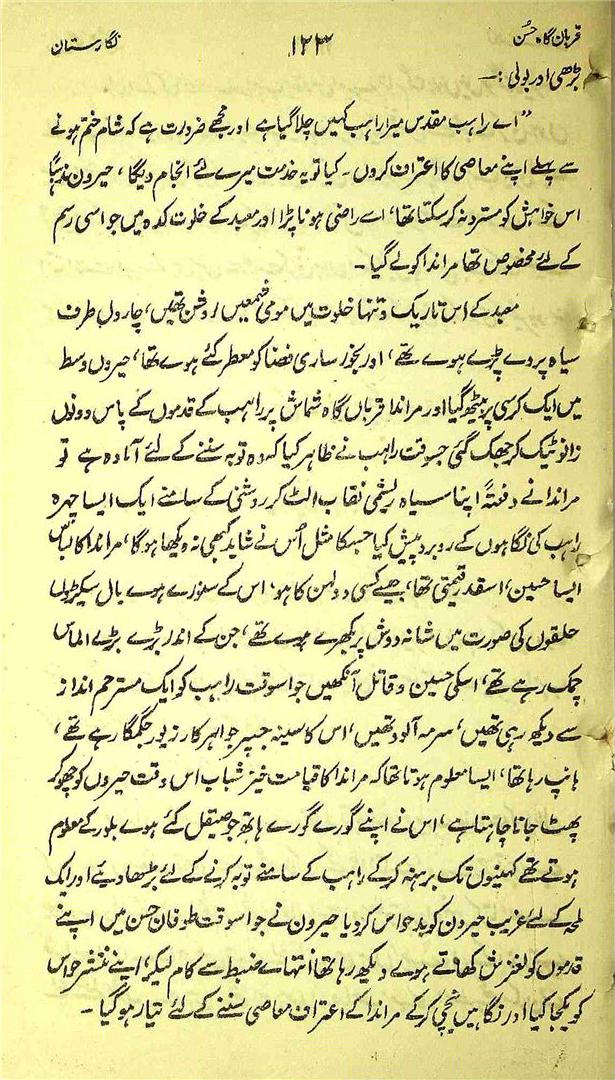 قربان گاہ حُسن
۱۲۳
نگارستان
بڑھی اور بولی :۔
”اے راہب مقدس میرا راہب کہیں چلا گیا ہے اور مجھے ضرورت ہے کہ شام ختم ہونے
سے پہلے اپنے معاصی کا اعتراف کروں۔ کیا تو یہ خدمت میرے لئے انجام دیگا، حیرون مذہباً
اس خواہش کو مسترد نہ کر سکتا تھا، اسے راضی ہونا پڑا اور معبد کے خلوت کدہ میں جو اسی رسم
کے لئے مخصوص تھا مرانداکو لے گیا۔
معبد کے اس تاریک و تنہا خلوت میں مومی شمعیں روشن تھیں، چاروں طرف
سیاہ پردے پڑے ہوے تھے، اور بخور ساری فضا کو معطر کئے ہوے تھا، حیرون وسط
میں ایک کرسی پر بیٹھ گیا اور مراندا قرباں گاہ شماش پر راہب کے قدموں کے پاس دونوں
زانو ٹیک کر جھک گئی جسوقت راہب نے ظاہر کیا کہ وہ توبہ سننے کے لئے آمادہ ہے تو
مراندا نے دفعتہً اپنا سیاہ ریشمی نقاب الٹ کر روشنی کے سامنے ایک ایسا چہرہ
راہب کی نگاہوں کے روبرو پیش کیا جسکا مثل اُس نے شاید کبھی نہ دیکھا ہوگا، مراندا کا لباس
ایسا حسین، اسقدر قیمتی تھا، جیسے کسی دولہن کا ہو، اس کے سنورے ہوے بال سیکڑوں
حلقوں کی صورت میں شانہ و دوش پر بکھرے ہوے تھے، جن کے اندر بڑے بڑے الماس
چمک رہے تھے، اسکی حسین و قاتل آنکھیں جو اسوقت راہب کو ایک مسترحم انداز
سے دیکھ رہی تھیں، سرمہ آلود تھیں، اس کا سینہ جسپر جواہر کار زیور جگمگا رہے تھے،
ہانپ رہا تھا، ایسا معلوم ہوتا تھا کہ مراندا کا قیامت خیز شباب اس وقت حیرون کو چھو کر
پھٹ جانا چاہتا ہے، اس نے اپنے گورے گورے ہاتھ جو صیقل کئے ہوے بلور کے معلوم
ہوتے تھے کہنیوں تک برہنہ کر کے راہب کے سامنے توبہ کرنے کے لئے بڑھا دیئے اور ایک
لمحہ کے لئے غریب حیرون کو بدحواس کر دیا حیرون نے جو اسوقت طوفان حسن میں اپنے
قدموں کو لغزش کھاتے ہوے دیکھ رہا تھا انتہاے ضبط سے کام لیکر، اپنے منتشر حواس
کو یکجا کیا اور نگاہیں نیچی کر کے مراندا کے اعتراف معاصی سننے کے لئے تیار ہو گیا۔